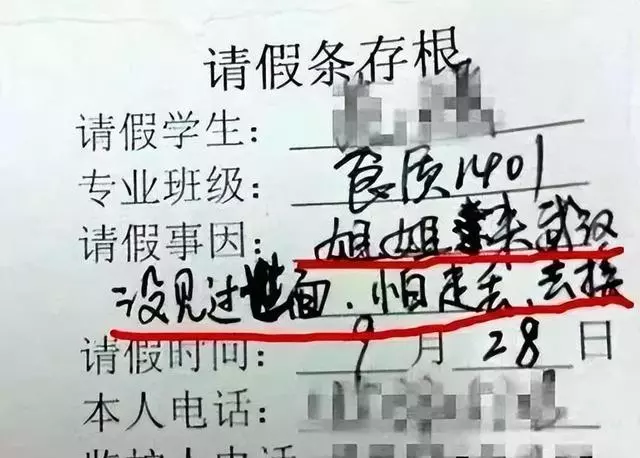 请假条存根
请假学生：
专业班级： 食质1401
请假事因： 姐姐来武汉
没见过世面，怕走丢，去接
请假时间： 9月28日
本人电话：
监护人电话：